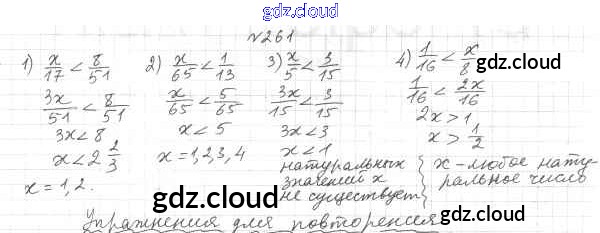 gdz.cloud
№261
1) x/17 < 8/51
3x/51 < 8/51
3x < 8
x < 2 2/3
x = 1, 2.
2) x/65 < 1/13
x/65 < 5/65
x < 5
x = 1, 2, 3, 4
3) x/5 < 3/15
3x/15 < 3/15
3x < 3
x < 1
натуральных
значений x
не существует
4) 1/16 < x/8
gdz.cloud
1/16 < 2x/16
2x > 1
x > 1/2
x - любое нату-
ральное число
gdz.cloud
gdz.cloud
gdz.cloud
Упражнения для повторения
gdz.cloud